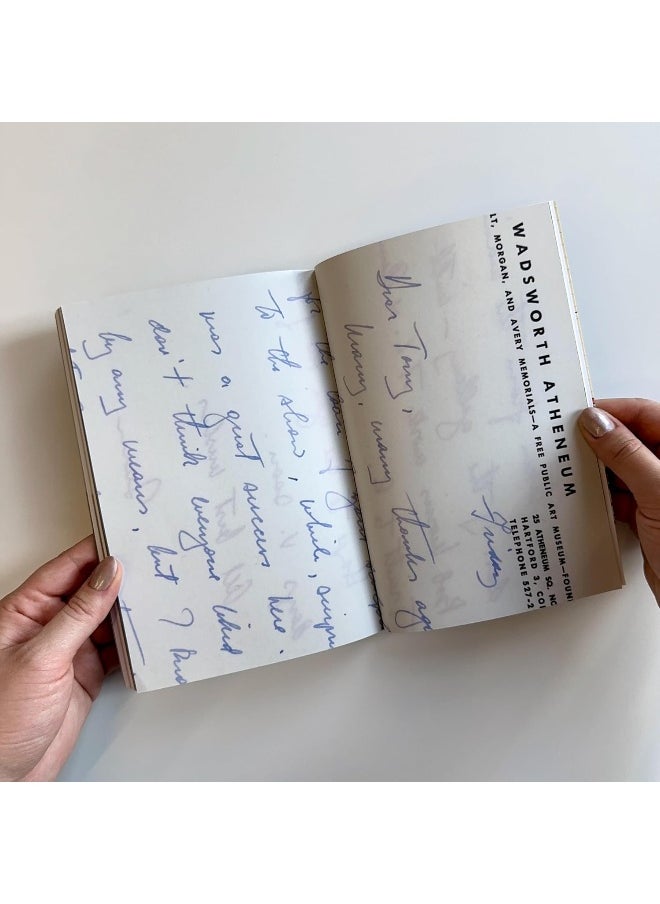 WADSWORTH ATHENEUM
LT, MORGAN, AND AVERY MEMORIALS—A FREE PUBLIC ART MUSEUM—FOUN
25 ATHENEUM SQ. NO
HARTFORD 3, CO
TELEPHONE 527-2
Friday
Dear Tony,
Many, many thanks aga
for the loan of your
to the show, which, surpri
was a great success here. I
don't think everyone liked
by any means, but I kno